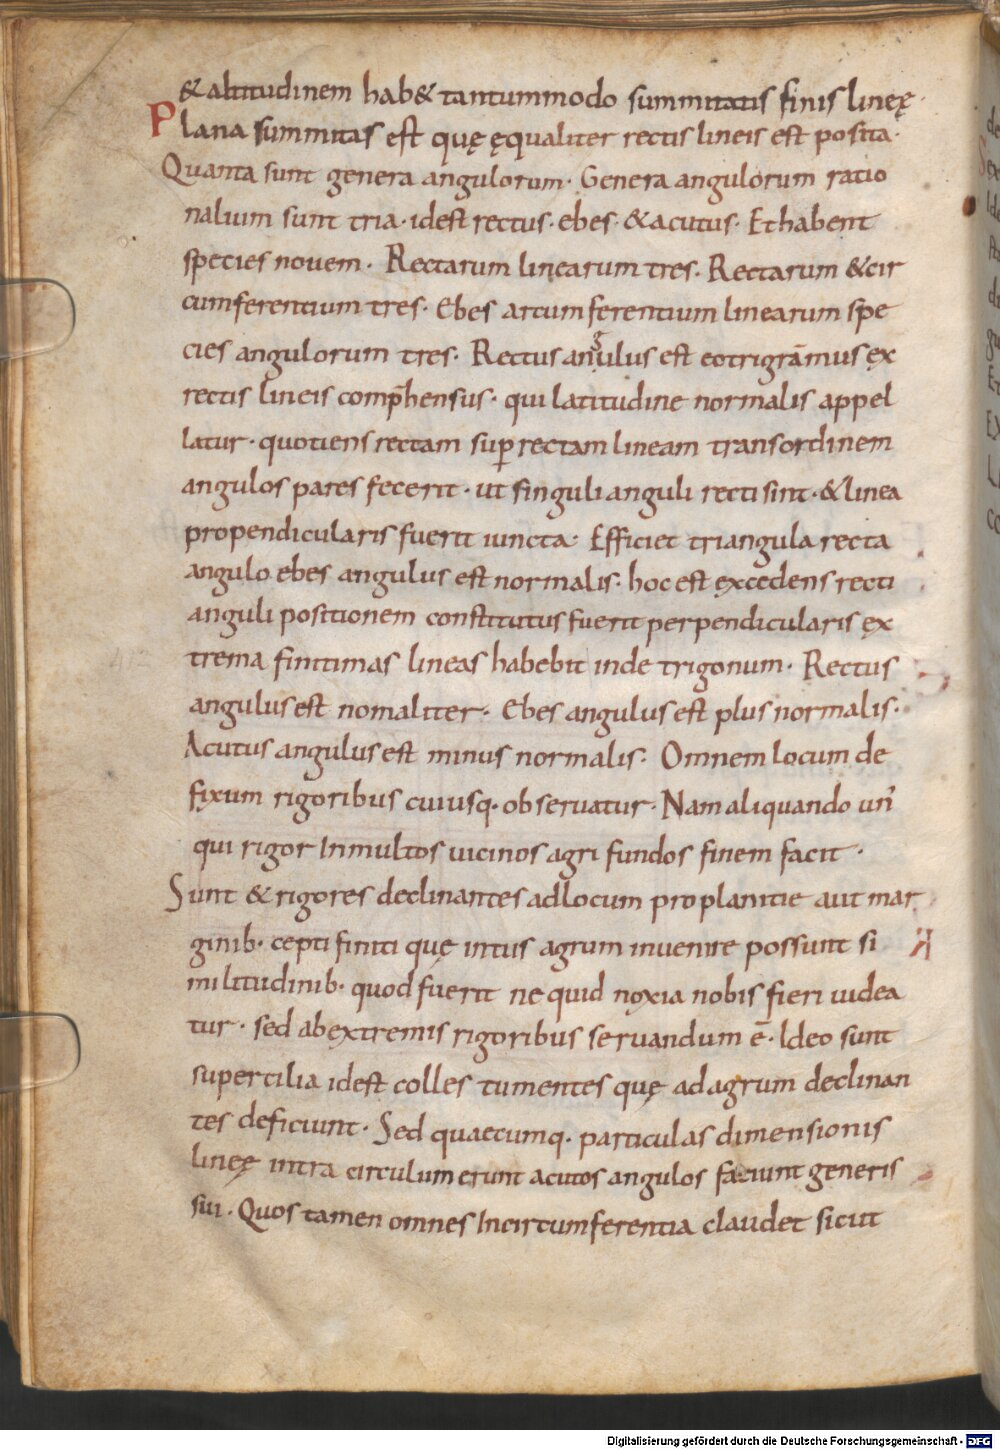 & altitudinem hab& tantummodo summitatis finis lineę·
Plana summitas est quę ęqualiter rectis lineis est posita·
Quanta sunt genera angulorum· Genera angulorum ratio
nalium sunt tria· idest rectus· ebes· & acutus· Et habent
species novem· Rectarum linearum tres· Rectarum & cir
cumferentium tres· Ebes arcumferentium linearum spe
cies angulorum tres· Rectus angulus est eotrigrāmus ex
rectis lineis comp̄hensus· qui latitudine normalis appel
latur· quotiens rectam suꝑ rectam lineam transordinem
angulos pares fecerit· ut singuli anguli recti sint· & linea
propendicularis fuerit iuncta· Efficiet triangula recta
angulo ebes angulus est normalis· hoc est excedens recti
anguli positionem constitutus fuerit perpendicularis ex
trema finitimas lineas habebit inde trigonum· Rectus
angulus est nomaliter· Ebes angulus est plus normalis·
Acutus angulus est minus normalis· Omnem locum de
fixum rigoribus cuiusq· observatur· Nam aliquando un̄
qui rigor In multos uicinos agri fundos finem facit·
Sunt & rigores declinantes ad locum pro planitie aut mar
ginib· cepti finiti quę intus agrum invenire possunt si
militudinib· quod fuerit ne quid noxia nobis fieri uidea
tur· sed ab extremis rigoribus servandum ē· Ideo sunt
supercilia idest colles tumentes quę ad agrum declinan
tes deficiunt· Sed quaecumq· particulas dimensionis
lineę intra circulum erunt acutos angulos faciunt generis
sui· Quos tamen omnes In circumferentia claudet sicut
Digitalisierung gefördert durch die Deutsche Forschungsgemeinschaft - DFG